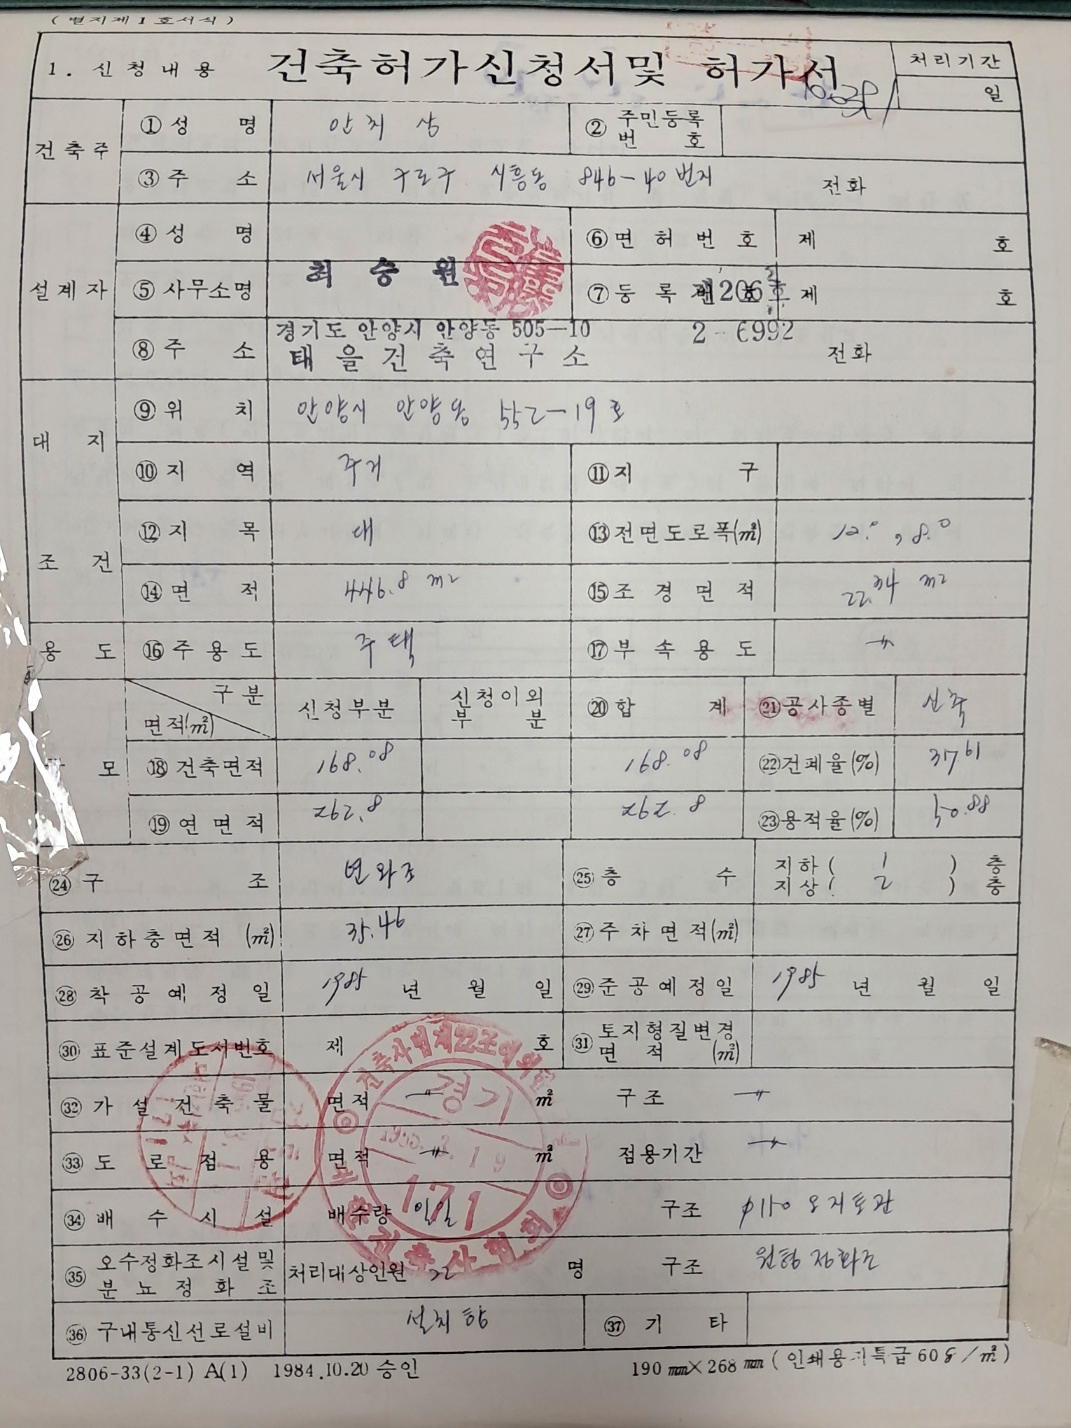 (별지제1호서식)
1. 신청내용 건축허가신청서및 허가서 처리기간
일
건축주 ①성 명 안치상 ②주민등록번호
③주 소 서울시 구로구 시흥동 846-40번지 전화
설계자 ④성 명 최승원 ⑥면허번호 제 호
⑤사무소명 ⑦등록번호 제 호 제1206호
⑧주 소 경기도 안양시 안양동 505-10 2-6992
태을건축연구소 전화
대지조건 ⑨위 치 안양시 안양동 552-19호
⑩지 역 주거 ⑪지 구
⑫지 목 대 ⑬전면도로폭(㎡) 12.0, 8.0
⑭면 적 446.8 m2 ⑮조경면적 22.34 m2
용도 ⑯주용도 주택 ⑰부속용도 〃
구분 면적(㎡) 신청부분 신청이외부분 ⑳합 계 ㉑공사종별 신축
모 ⑱건축면적 168.08 168.08 ㉒건폐율(%) 37.61
⑲연면적 262.8 262.8 ㉓용적율(%) 50.88
㉔구 조 연와조 ㉕층 수 지하( 1 )층
지상( 2 )층
㉖지하층면적 (㎡) 35.46 ㉗주차면적(㎡)
㉘착공예정일 1985년 월 일 ㉙준공예정일 1985년 월 일
㉚표준설계도서번호 제 호 ㉛토지형질변경면적 (㎡)
㉜가설건축물 면적 〃 ㎡ 구조 〃
㉝도로점용 면적 〃 ㎡ 점용기간 〃
㉞배수시설 배수량 구조 ∮150 오지토관
㉟오수정화조시설및분뇨정화조 처리대상인원 명 구조 원형 정화조
㊱구내통신선로설비 설치함 ㊲기 타
건축사법제22조에의한
경기
171
건축사협회
2806-33(2-1) A(1) 1984.10.20 승인 190㎜×268㎜(인쇄용지특급60g/㎡)